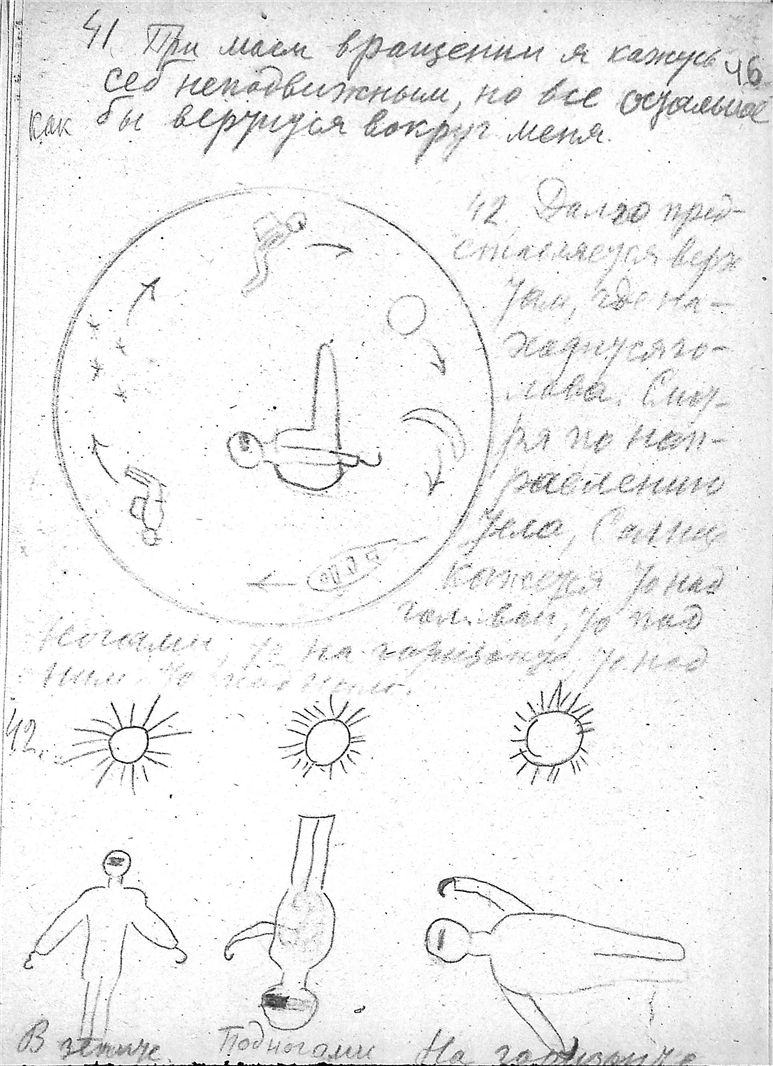 41 При моем вращении я кажусь
46
себе неподвижным, но все остальное
как бы вертится вокруг меня.
42. Далее пред-
ставляется верх
там, где на-
ходится го-
лова. Смот-
ря по нап-
равлению
тела, Солнце
кажется то над
головой, то под
ногами, то на горизонте, то над
ним, то под
42.
В зените.
Под ногами
На горизонте